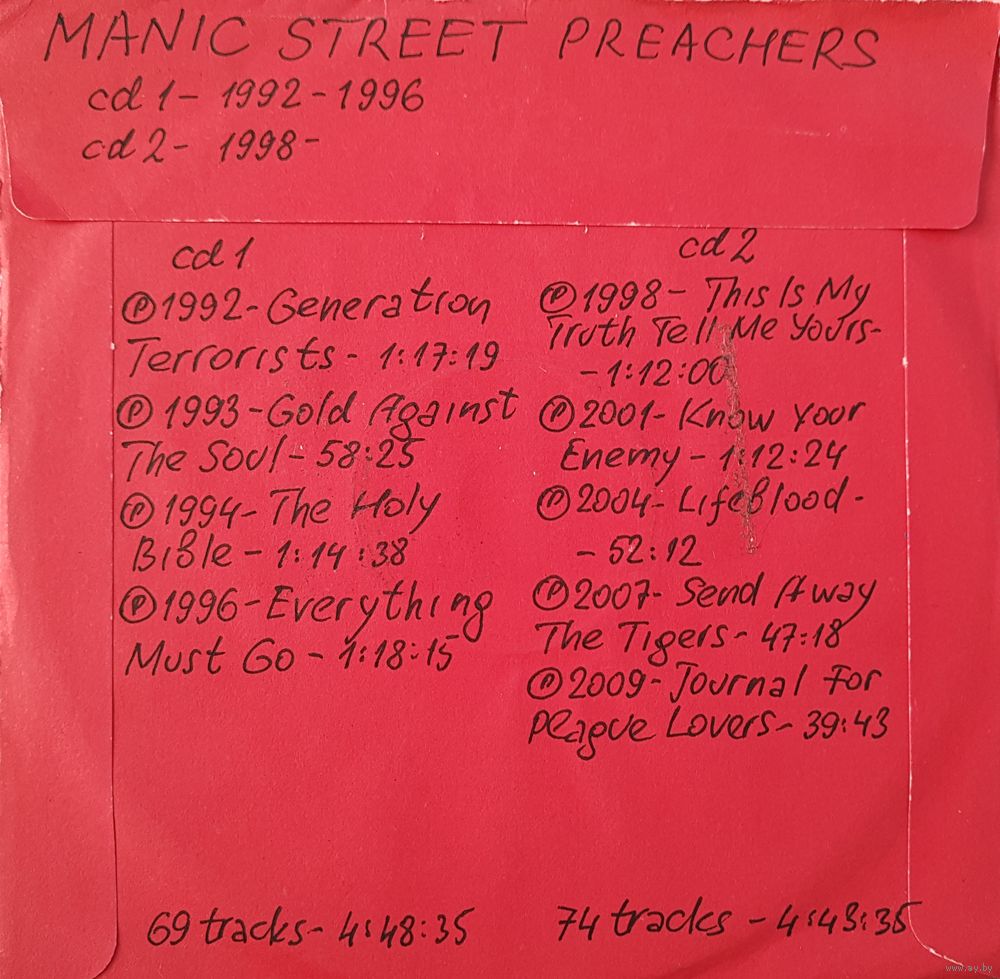 MANIC STREET PREACHERS
cd 1- 1992-1996
cd 2- 1998-
cd 1
℗1992- Generation
Terrorists- 1:17:19
℗1993-Gold Against
The Soul- 58:25
℗1994- The Holy
Bible- 1:14:38
℗1996-Everything
Must Go- 1:18:15
69 tracks- 4:48:35
cd 2
℗1998- This Is My
Truth Tell Me Yours-
-1:12:00
℗2001- Know Your
Enemy- 1:12:24
℗2004- Lifeblood-
- 52:12
℗2007- Send Away
The Tigers- 47:18
℗2009- Journal For
Plague Lovers- 39:43
74 tracks - 4:43:35
www.ay.by